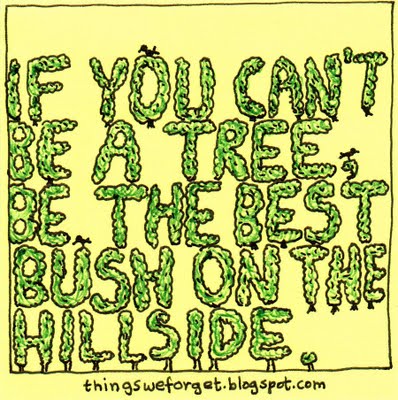 IF YOU CAN'T
BE A TREE,
BE THE BEST
BUSH ON THE
HILLSIDE.
thingsweforget.blogspot.com